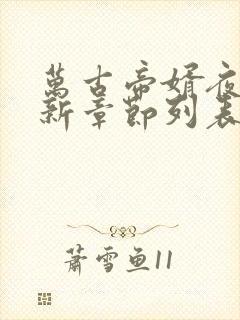 萬古帝婿夜
新章節列表
蕭雪魚11